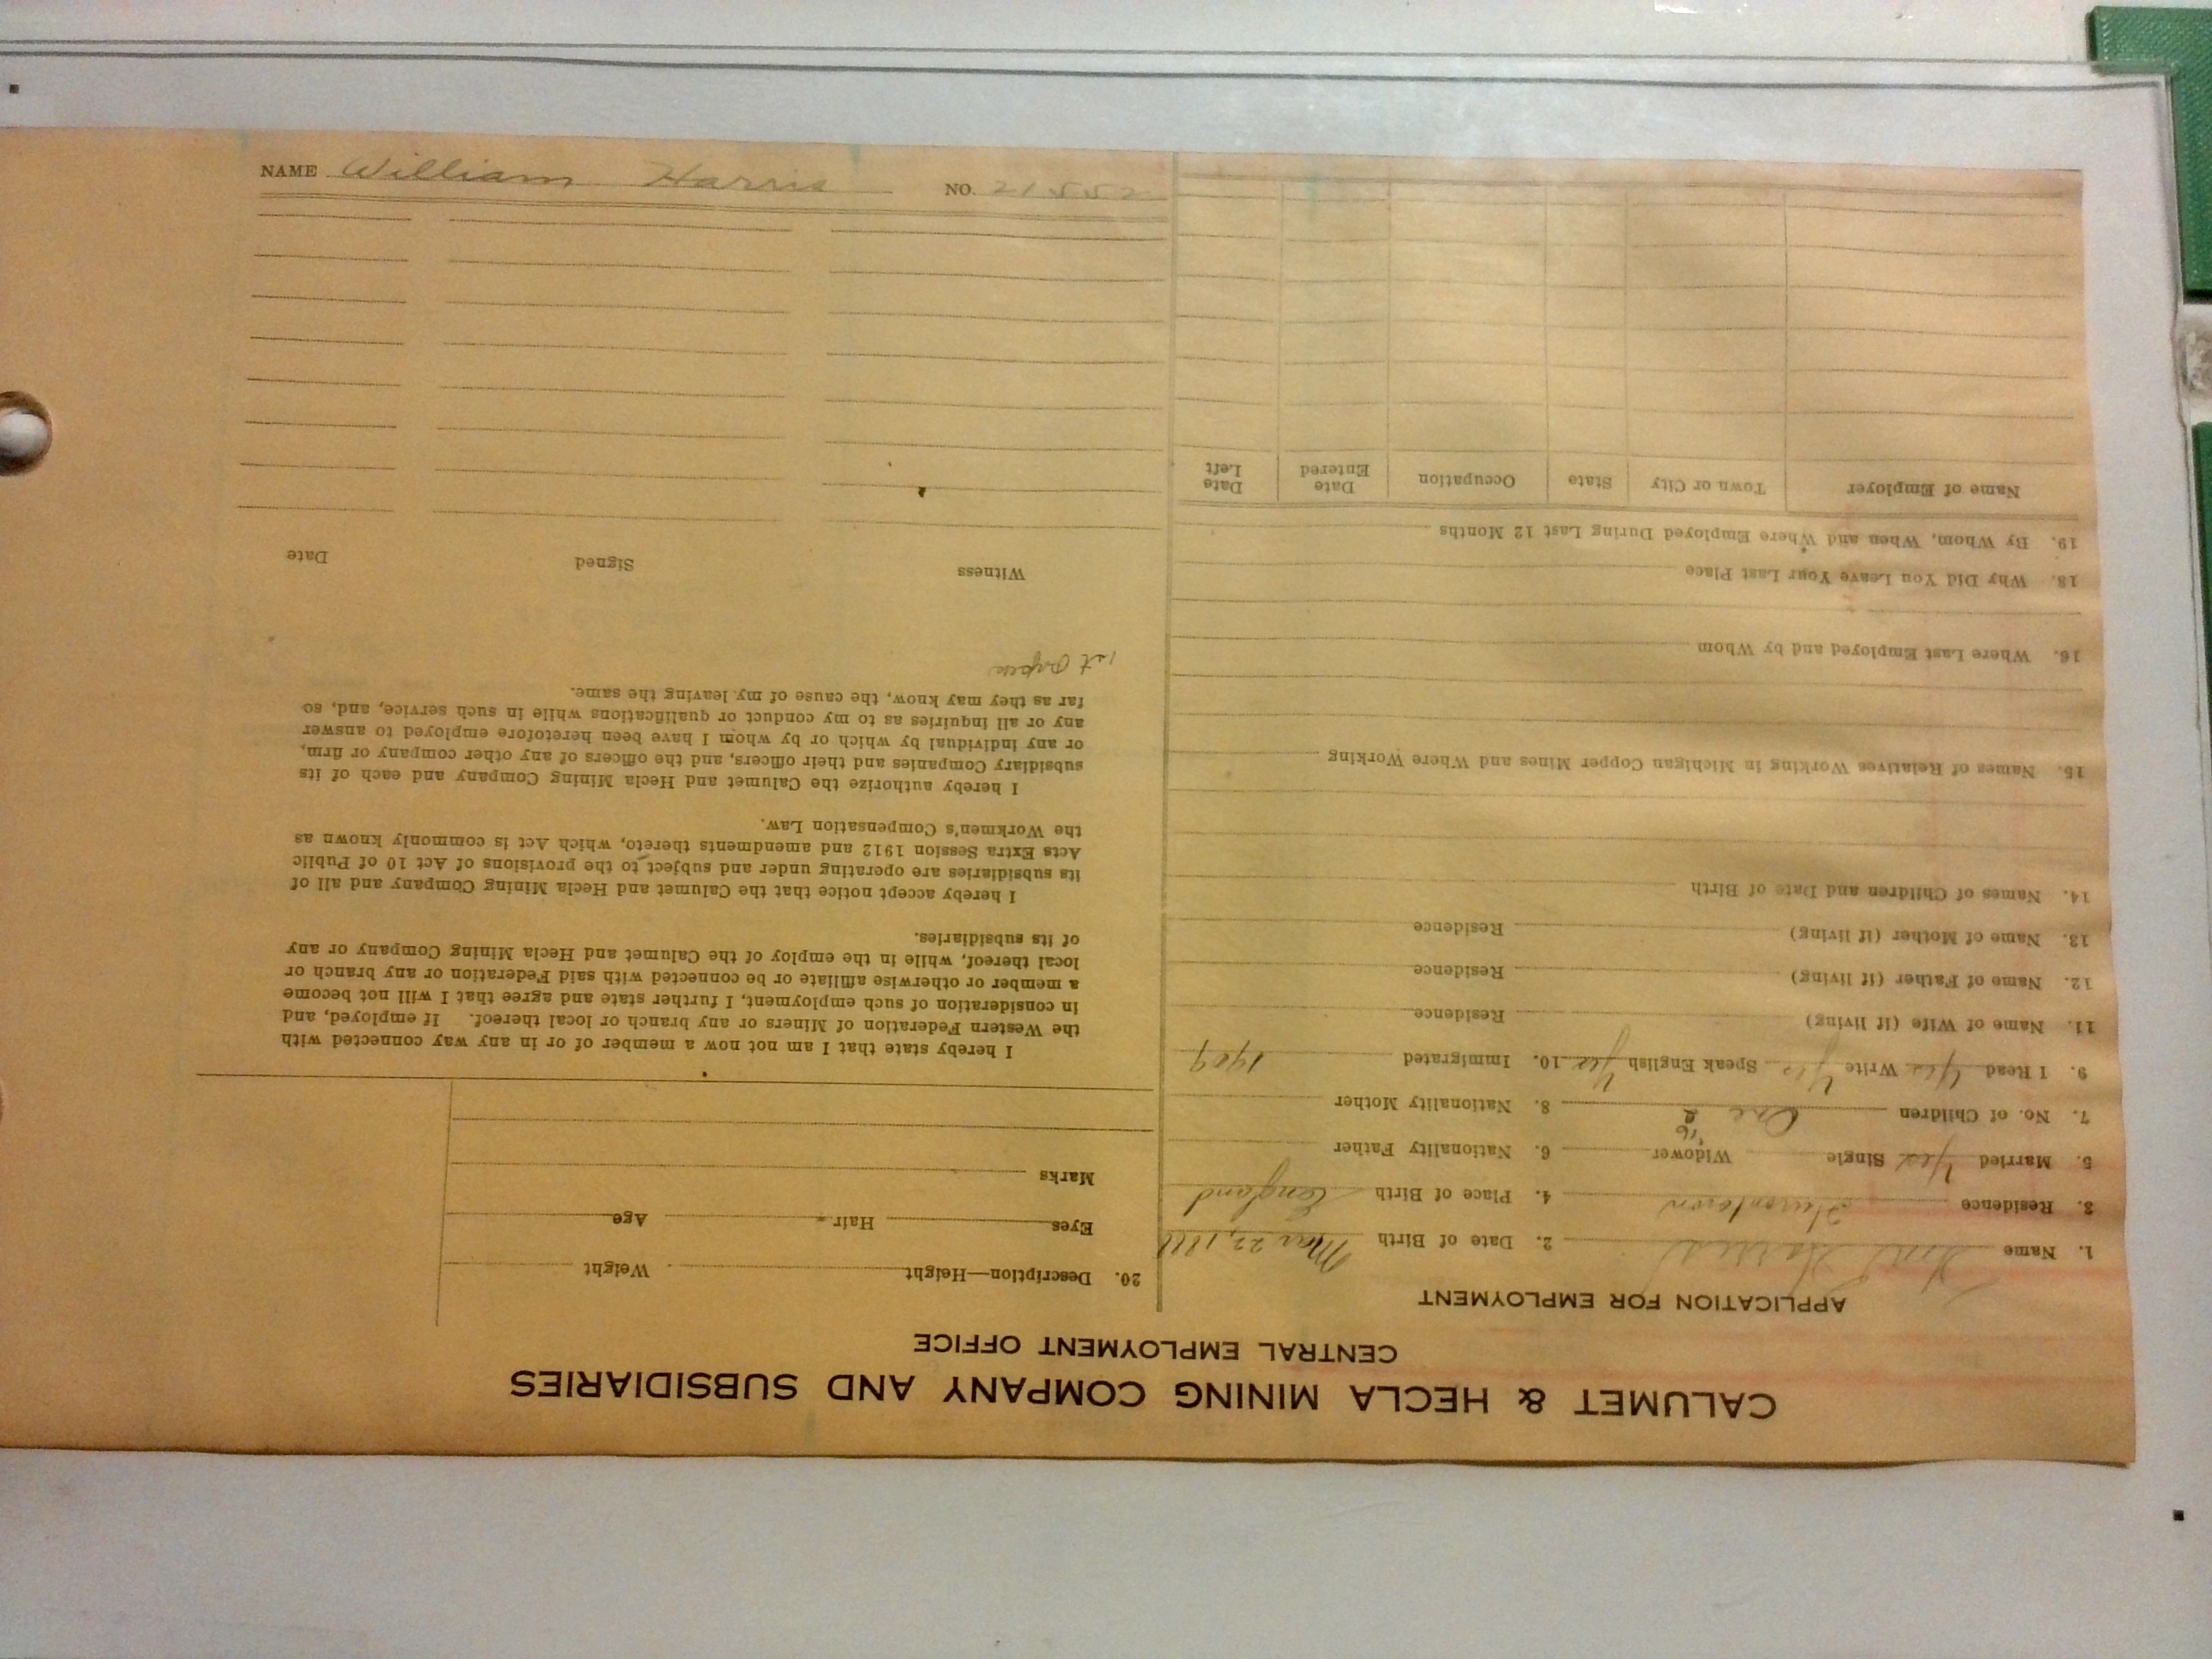 CALUMET & HECLA MINING COMPANY AND SUBSIDIARIES
CENTRAL EMPLOYMENT OFFICE
APPLICATION FOR EMPLOYMENT
1. Name Wm Harris 2. Date of Birth Mar 22, 1881
3. Residence Hurontown 4. Place of Birth England
5. Married Yes Single Widower 6. Nationality Father
7. No. of Children One 8. Nationality Mother
9. I Read Yes Write Yes Speak English Yes 10. Immigrated 1909
11. Name of Wife (if living) Residence
12. Name of Father (if living) Residence
13. Name of Mother (if living) Residence
14. Names of Children and Date of Birth
15. Names of Relatives Working in Michigan Copper Mines and Where Working
16. Where Last Employed and by Whom
18. Why Did You Leave Your Last Place
19. By Whom, When and Where Employed During Last 12 Months
Name of Employer Town or City State Occupation Date Entered Date Left
20. Description—Height Weight
Eyes Hair Age
Marks
I hereby state that I am not now a member of or in any way connected with
the Western Federation of Miners or any branch or local thereof. If employed, and
in consideration of such employment, I further state and agree that I will not become
a member or otherwise affiliate or be connected with said Federation or any branch or
local thereof, while in the employ of the Calumet and Hecla Mining Company or any
of its subsidiaries.
I hereby accept notice that the Calumet and Hecla Mining Company and all of
its subsidiaries are operating under and subject to the provisions of Act 10 of Public
Acts Extra Session 1912 and amendments thereto, which Act is commonly known as
the Workmen's Compensation Law.
I hereby authorize the Calumet and Hecla Mining Company and each of its
subsidiary Companies and their officers, and the officers of any other company or firm,
or any individual by which or by whom I have been heretofore employed to answer
any or all inquiries as to my conduct or qualifications while in such service, and, so
far as they may know, the cause of my leaving the same.
1st papers
Witness Signed Date
NAME William Harris NO. 21552